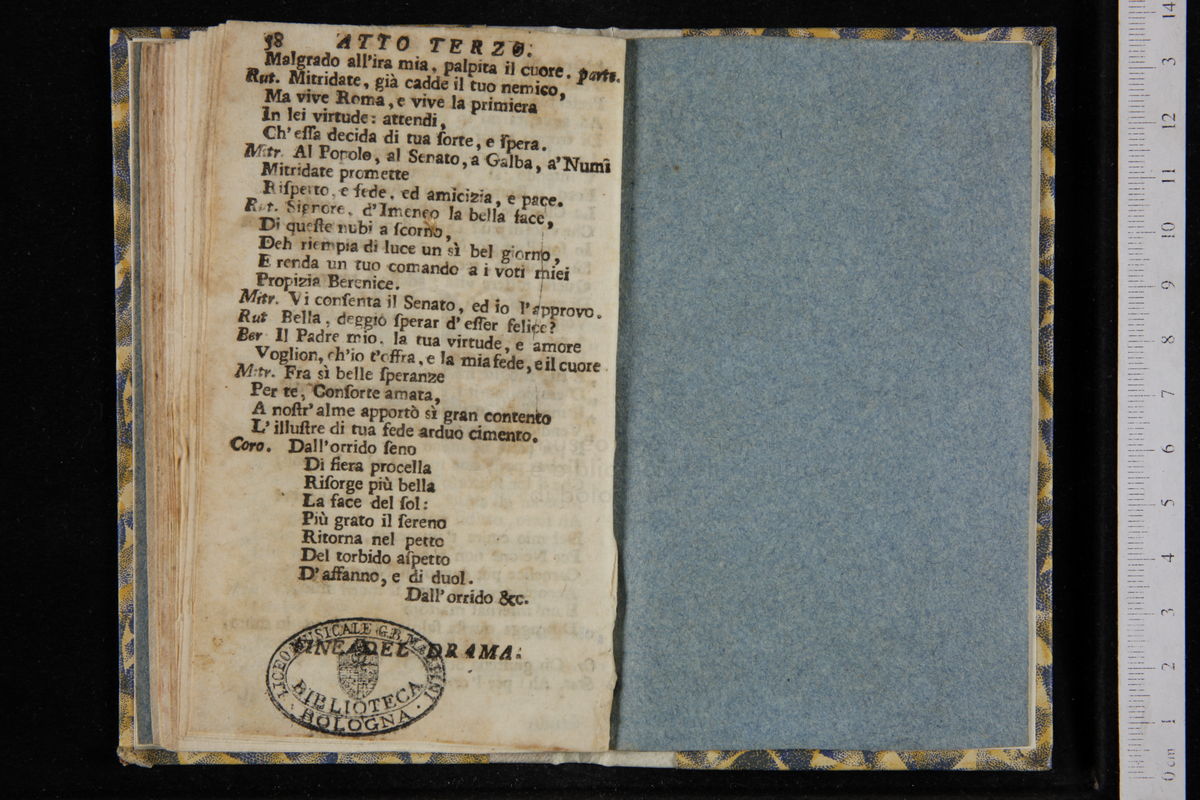 58 ATTO TERZO.
Malgrado all'ira mia, palpita il cuore. parte.
Rut. Mitridate, già cadde il tuo nemico,
Ma vive Roma, e vive la primiera
In lei virtude: attendi,
Ch'eſſa decida di tua ſorte, e ſpera.
Mitr. Al Popolo, al Senato, a Galba, a' Numi
Mitridate promette
Riſpetto, e fede, ed amicizia, e pace.
Rut. Signore, d'Imeneo la bella face,
Di queſte nubi a ſcorno,
Deh riempia di luce un sì bel giorno,
E renda un tuo comando a i voti miei
Propizia Berenice.
Mitr. Vi conſenta il Senato, ed io l'approvo.
Rut Bella, deggio ſperar d'eſſer felice?
Ber Il Padre mio, la tua virtude, e amore
Voglion, ch'io t'offra, e la mia fede, e il cuore.
Mitr. Fra sì belle ſperanze
Per te, Conſorte amata,
A noſtr'alme apportò sì gran contento
L'illuſtre di tua fede arduo cimento.
Coro. Dall'orrido ſeno
Di fiera procella
Riſorge più bella
La face del ſol:
Più grato il ſereno
Ritorna nel petto
Del torbido aſpetto
D'affanno, e di duol.
Dall'orrido &c.
FINE DEL DRAMA.
LICEO MUSICALE G.B. MARTINI
BIBLIOTECA
BOLOGNA
0 cm 1 2 3 4 5 6 7 8 9 10 11 12 3 14